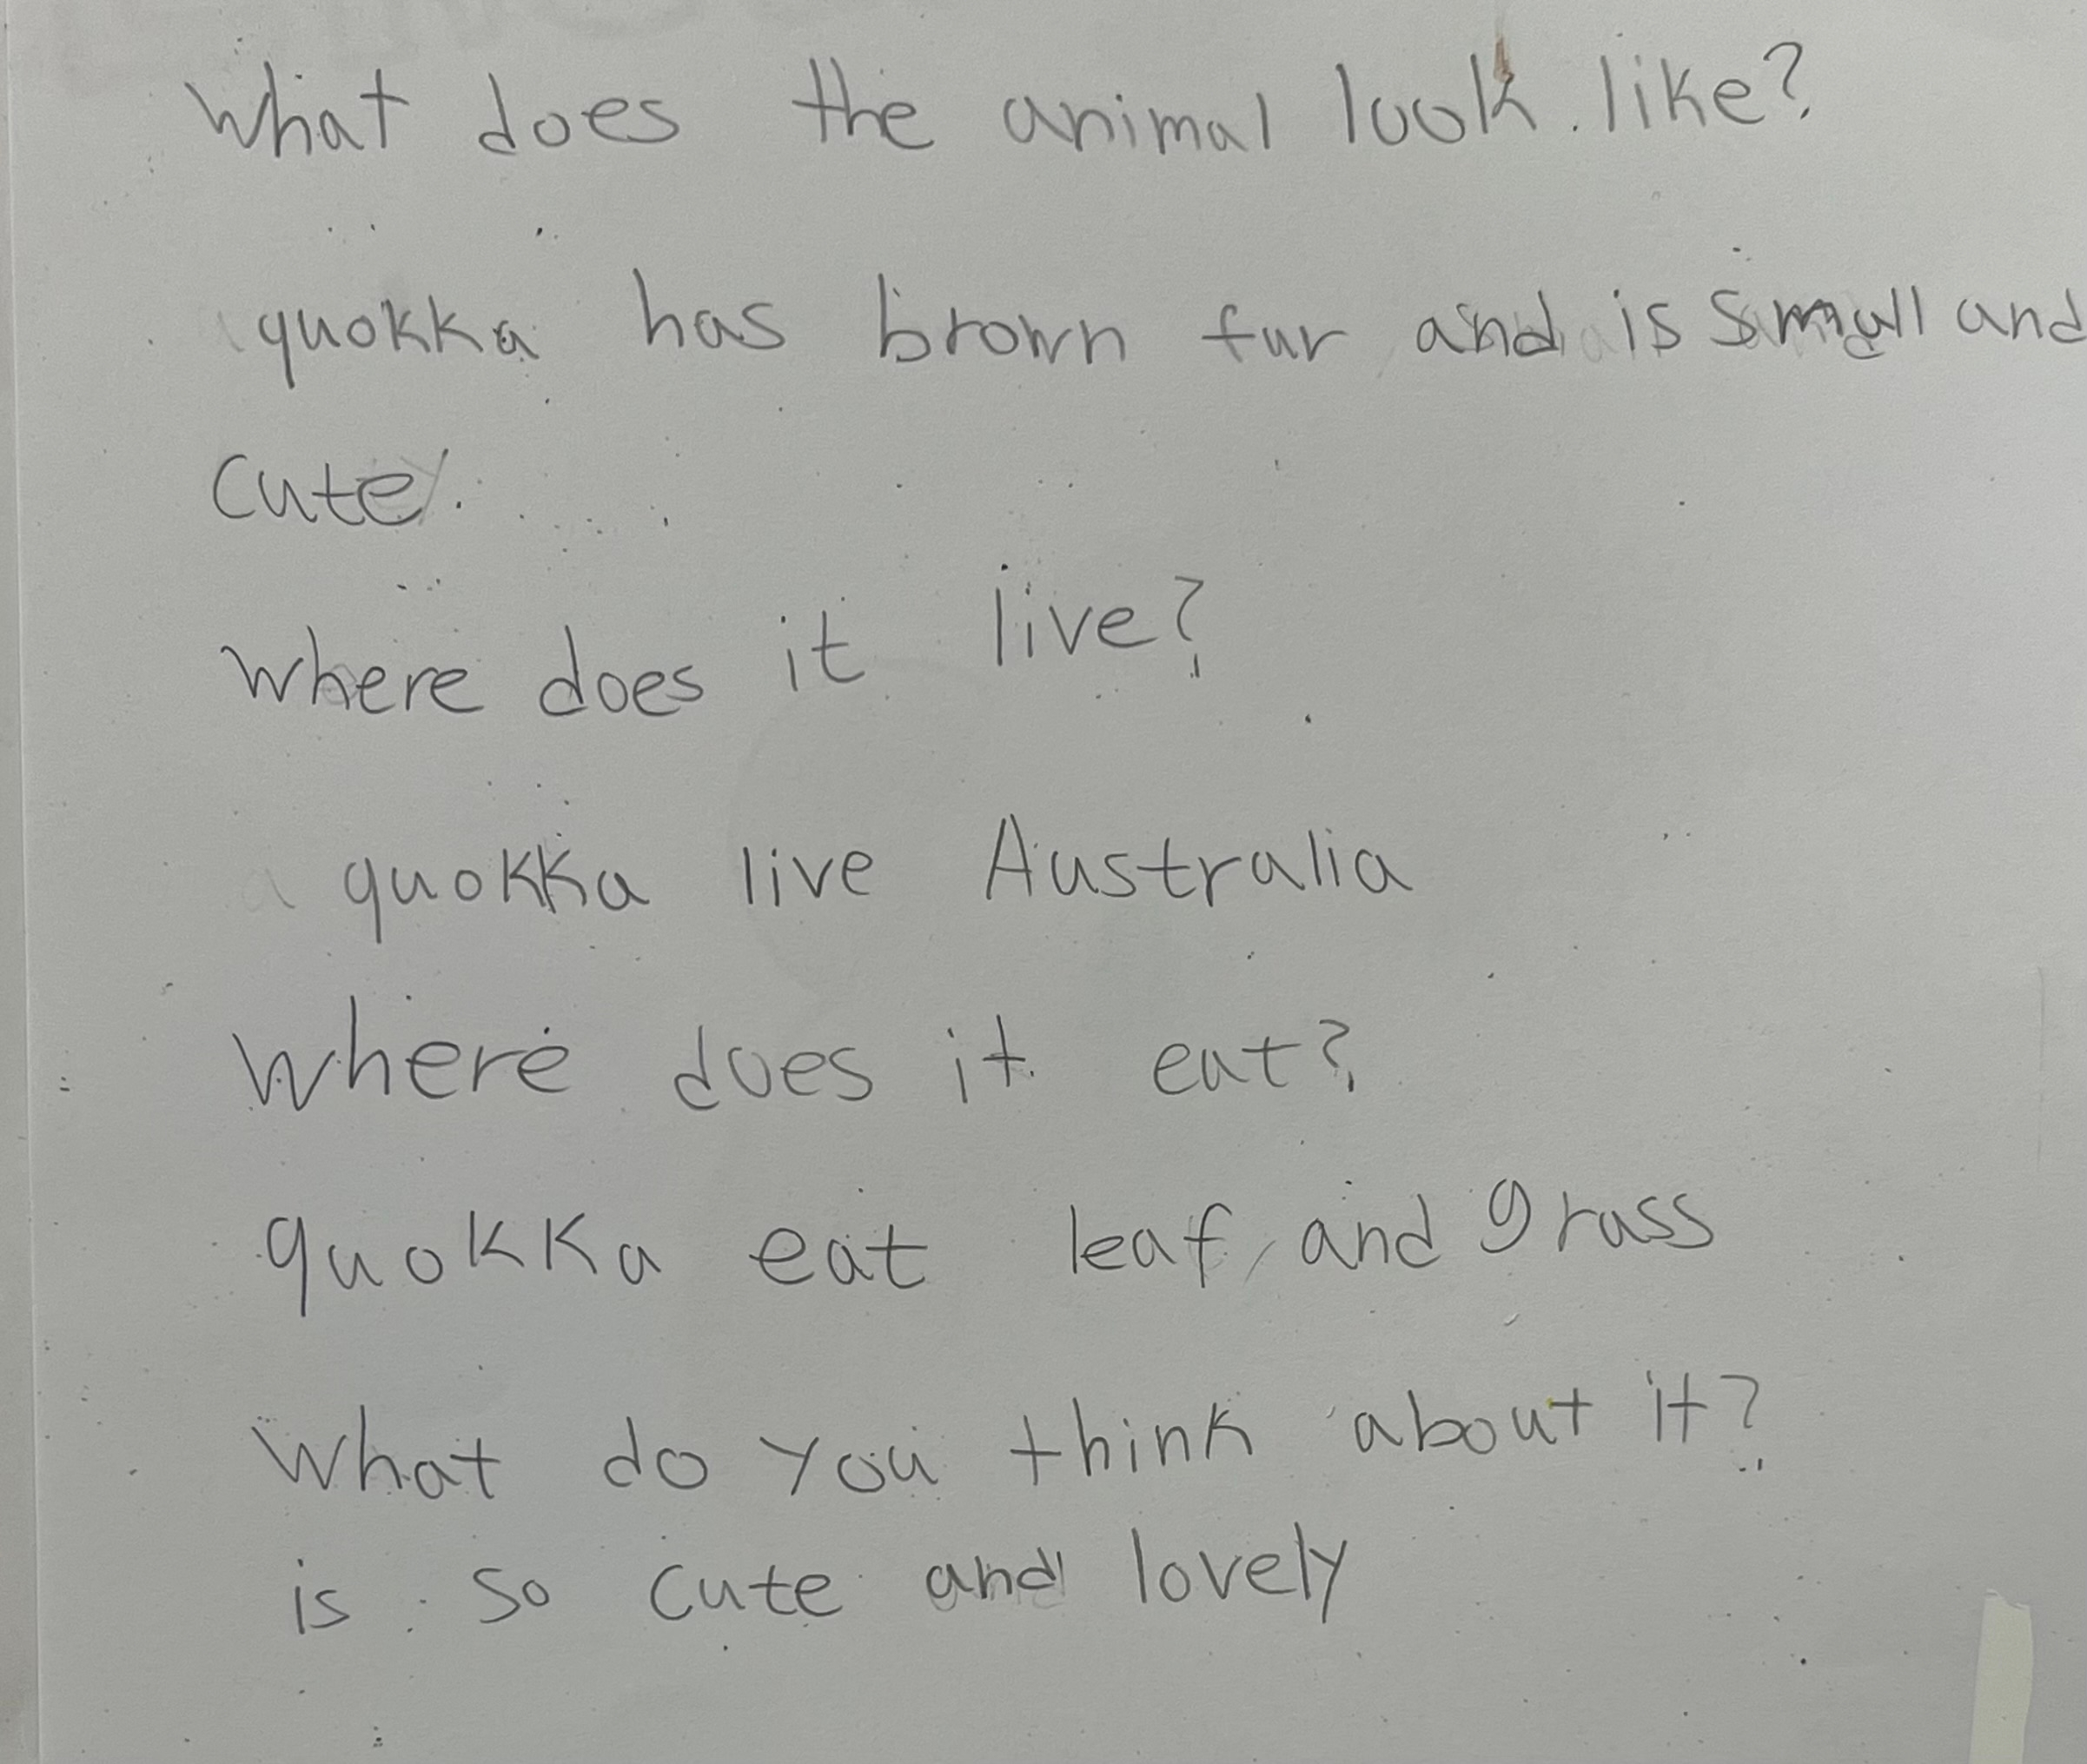 What does the animal look like?
quokka has brown fur and is small and
cute.
where does it live?
a quokka live Australia
where does it eat?
quokka eat leaf and grass
what do you think about it?
is so cute and lovely